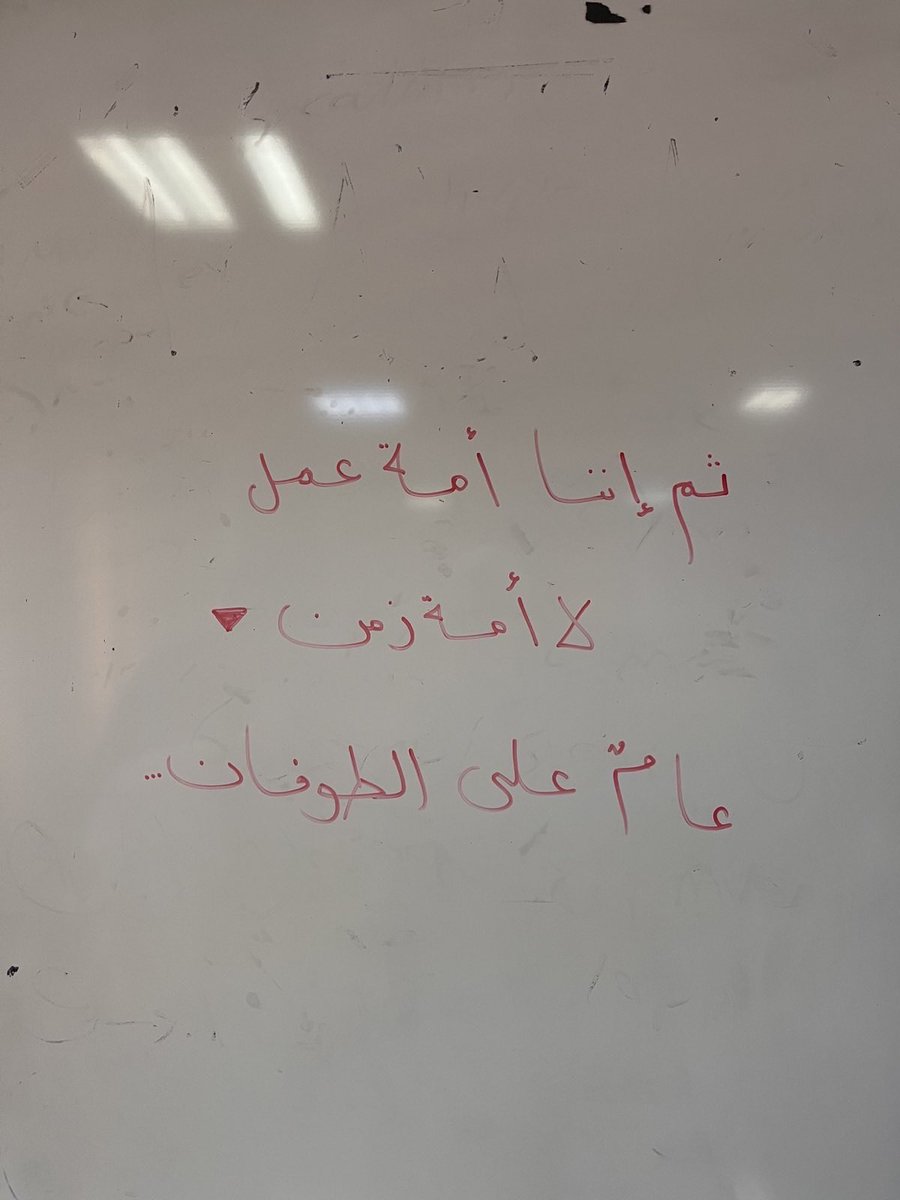 ثم إننا أمة عمل
لا أمة زمن 🔻
عامٌ على الطوفان...